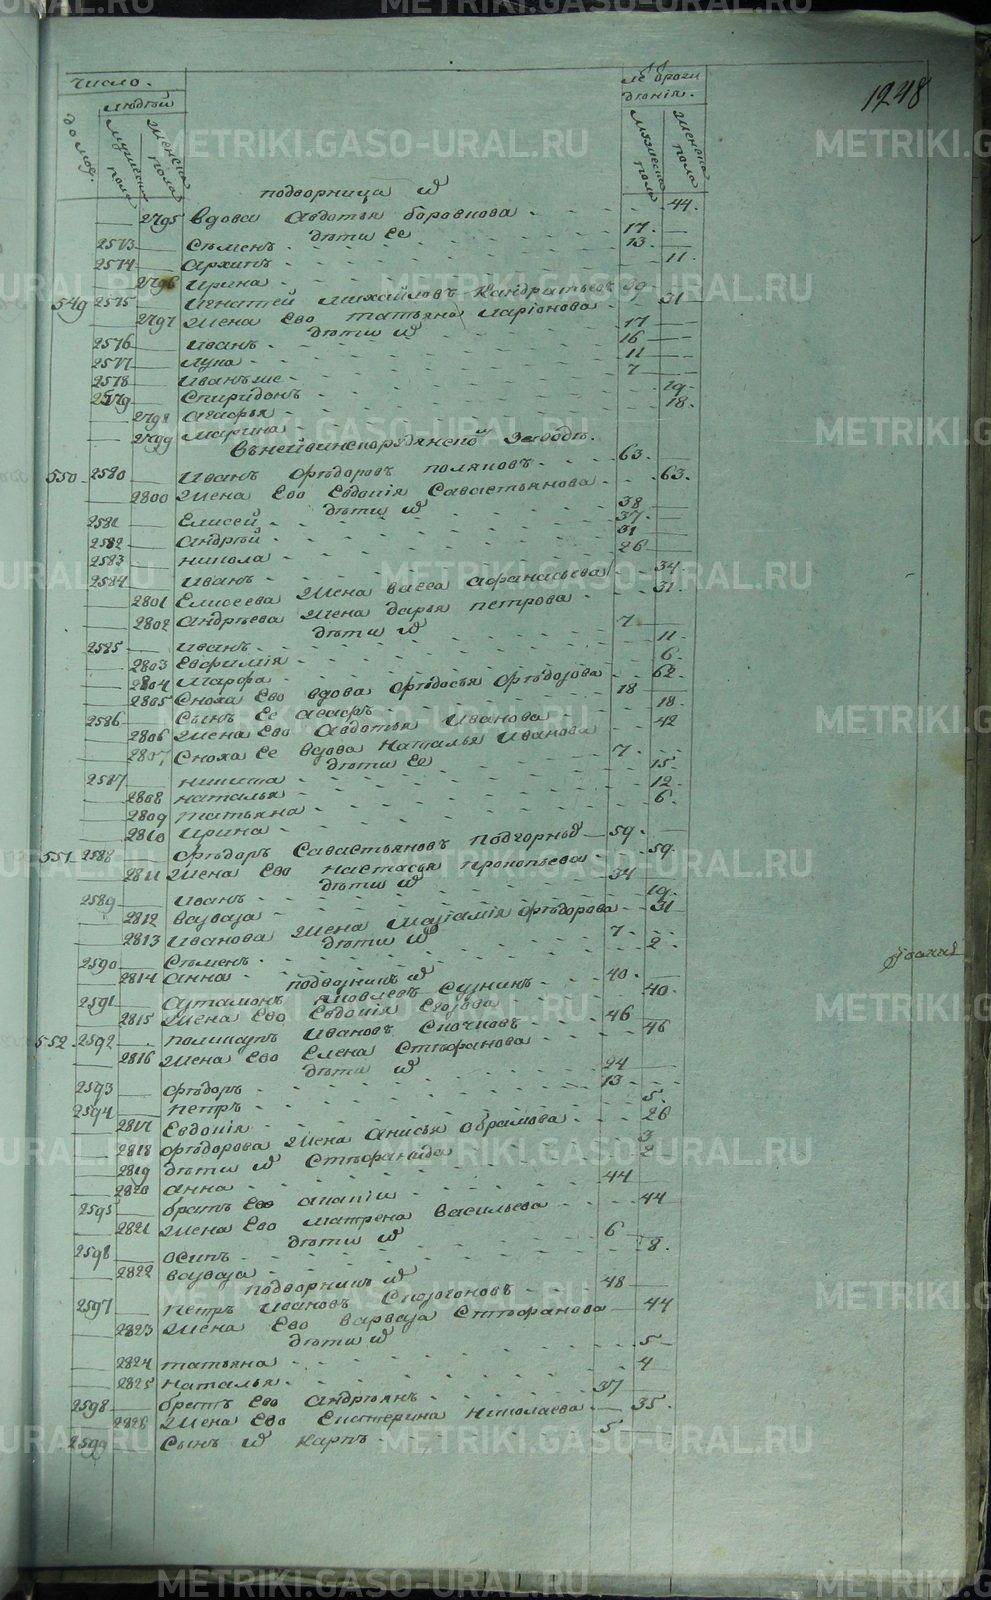 1248
число.
людей
домов.
мужеска пола
женска пола
лѣ
мужеска пола
женска пола
подворница
2795 вдова Авдотья боровкова 44.
дѣти Ее
2573 Сѣменъ 17.
2574 Архипъ 13.
2796 ирина 11
549 2575 игнатей михайловъ Кандратьевъ 39
2797 жена Ево татьяна ларіонова 31
дѣти
2576 иванъ 17
2577 лука 16
2578 иванъ же 11
2579 Спиридонъ 7
2798 агафья 19.
2799 марина 18.
550 2580 иванъ Ѳѣдоровъ поляковъ 63.
2800 жена Ево Евдокія Савастьянова 63.
дѣти
2581 Елисей 38
2582 андрѣй 37.
2583 никола 31
2584 иванъ 26
2801 Елисеева жена васса афанасьева 34
2802 андрѣева жена дарья петрова 31.
дѣти
2585 иванъ 7
2803 Евфимія 11
2804 марфа 6.
2805 Сноха Ево вдова Ѳѣдосья 62.
2586 Сынъ Ее 18
2806 жена Ево Авдотья иванова 18.
2807 Сноха Ее вдова наталья иванова 42
дѣти Ее
2587 никита 7.
2808 наталья 15
2809 татьяна 12
2810 ирина 6.
551 2588 Ѳѣдоръ Савастьяновъ подгорный 59.
2811 жена Ево настасья прокопьева 59.
дѣти
2589 иванъ 34
2812 варвара 19.
2813 иванова жена Ѳѣдорова 31
дѣти
2590 Сѣменъ 7
2814 анна 2
подворникъ
2591 артамонъ яковлевъ 40.
2815 жена Ево Евдокія Егорова 40.
552 2592 поликарпъ ивановъ 46
2816 жена Ево Елена Стефанова 46
дѣти
2593 Ѳѣдоръ 24
2594 петръ 13
2817 Евдокія 5.
2818 Ѳѣдорова жена анисья абрамова 26
2819 дѣти Стефанида 3
2820 анна 2
2595 братъ Ево 44
2821 жена Ево матрена васильева 44
дѣти
2596 осипъ 6
2822 варвара 8.
подворникъ
2597 петръ ивановъ 48
2823 жена Ево варвара Стефанова 44
дѣти
2824 татьяна 5
2825 наталья 4
2598 братъ Ево андрѣянъ 37
2826 жена Ево Екатерина николаева 35.
2599 Сынъ карпъ 5
METRIKI.GASO-URAL.RU